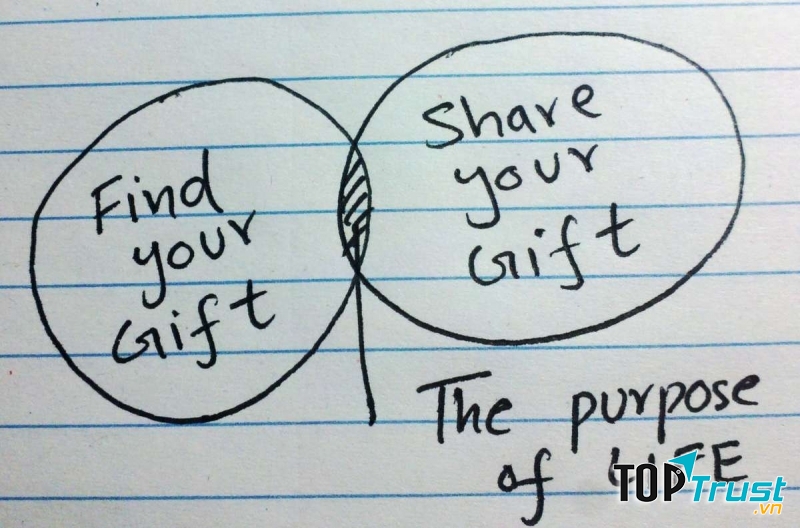 Find
your
Gift
Share
your
Gift
The purpose
of LIFE
TOPTrust
.vn